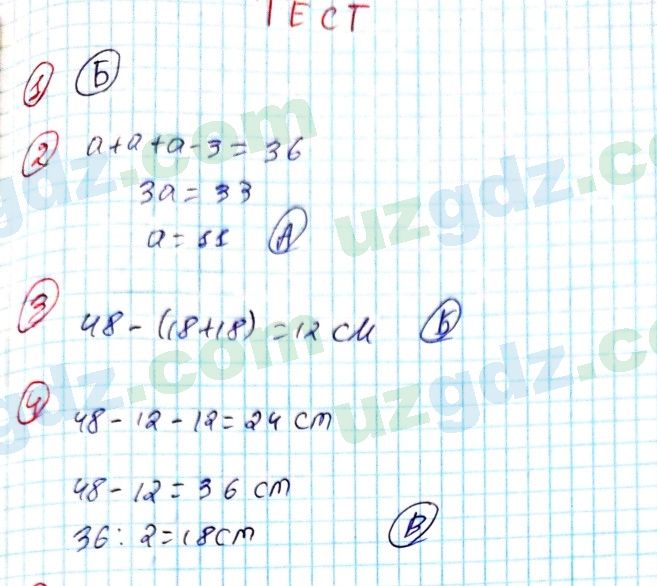 ТЕСТ
1 Б
2 a+a+a-3=36
3a=33
a=11 А
3 48-(18+18)=12 см Б
4 48-12-12=24 cm
48-12=36 cm
36:2=18cm В
uzgdz.com
uzgdz.com